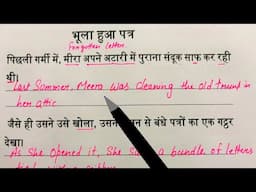 भूला हुआ पत्र
Forgotten letter
पिछली गर्मी में, मीरा अपने अटारी में पुराना संदूक साफ़ कर रही
थी।
Last Summer, Meera was cleaning the old trunk in
her attic
जैसे ही उसने उसे खोला, उसने से बंधे पत्रों का एक गट्ठर
देखा।
As She opened it, She a bundle of letters